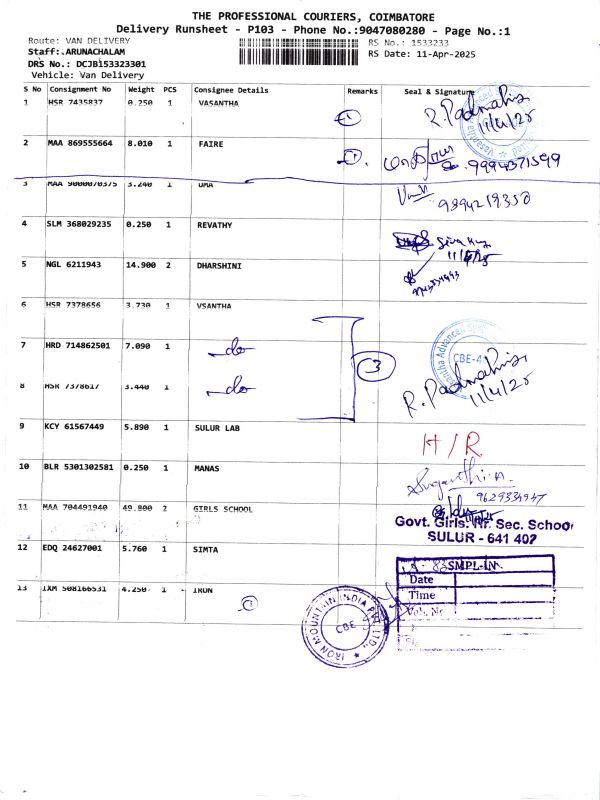 THE PROFESSIONAL COURIERS, COIMBATORE
Delivery Runsheet - P103 - Phone No.:9047080280 - Page No.:1
Route: VAN DELIVERY
RS No.: 1533233
Staff:.ARUNACHALAM
RS Date: 11-Apr-2025
DRS No.: DCJB153323301
Vehicle: Van Delivery
S No Consignment No Weight PCS Consignee Details Remarks Seal & Signature
1 HSR 7435837 0.250 1 VASANTHA R. Padmahis 11/4/25
2 MAA 869555664 8.010 1 FAIRE 9994371599
3 MAA 9000070375 3.240 1 UMA 9894219350
4 SLM 368029235 0.250 1 REVATHY
5 NGL 6211943 14.900 2 DHARSHINI
6 HSR 7378656 3.730 1 VSANTHA
7 HRD 714862501 7.090 1 do
3
CBE-4
8 HSR 7378617 3.440 1 do R. Padmahis 11/4/25
9 KCY 61567449 5.890 1 SULUR LAB H/R
10 BLR 5301302581 0.250 1 MANAS Suganthi.A
9629334947
11 MAA 704491940 49.800 2 GIRLS SCHOOL
Govt. Girls. Hr. Sec. School
SULUR - 641 402
12 EDQ 24627001 5.760 1 SIMTA
SMPL-IN
Date
Time
13 IXM 508166531 4.250 1 IRON 1
IRON MOUNTAIN INDIA PVT LTD.
CBE